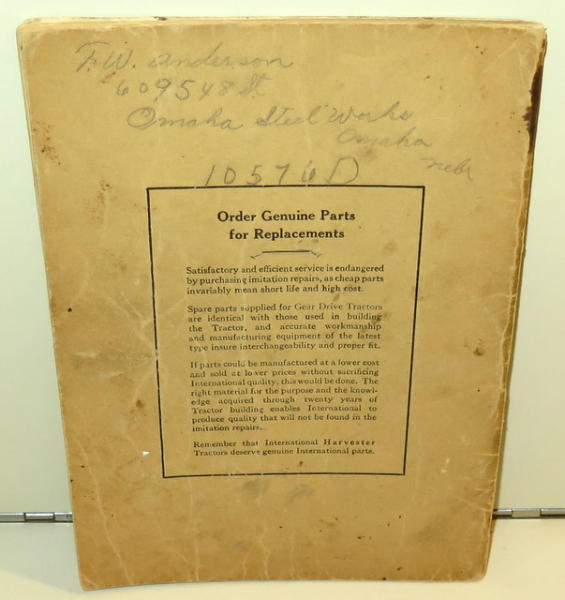 F.W. Anderson
609548 St
Omaha Steel Works
Omaha
Nebr
10576D
Order Genuine Parts
for Replacements
Satisfactory and efficient service is endangered
by purchasing imitation repairs, as cheap parts
invariably mean short life and high cost.
Spare parts supplied for Gear Drive Tractors
are identical with those used in building
the Tractor, and accurate workmanship
and manufacturing equipment of the latest
type insure interchangeability and proper fit.
If parts could be manufactured at a lower cost
and sold at lower prices without sacrificing
International quality, this would be done. The
right material for the purpose and the knowl-
edge acquired through twenty years of
Tractor building enables International to
produce quality that will not be found in the
imitation repairs.
Remember that International Harvester
Tractors deserve genuine International parts.